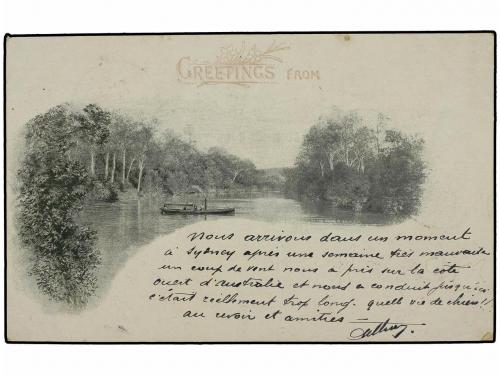 GREETINGS FROM
Nous arrivons dans un moment
à Sydney après une semaine très mauvaise
un coup de vent nous a pris sur la côte
ouest d'australie et nous a conduit jusqu'ici
c'était réellement trop long. quelle vie de chien!!
au revoir et amitiés